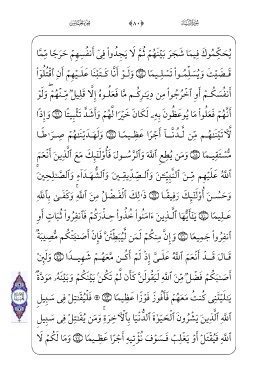 يُحَكِّمُوكَ فِيمَا شَجَرَ بَيْنَهُمْ ثُمَّ لَا يَجِدُوا۟ فِىٓ أَنفُسِهِمْ حَرَجًا مِّمَّا
قَضَيْتَ وَيُسَلِّمُوا۟ تَسْلِيمًا ۝ وَلَوْ أَنَّا كَتَبْنَا عَلَيْهِمْ أَنِ ٱقْتُلُوٓا۟
أَنفُسَكُمْ أَوِ ٱخْرُجُوا۟ مِن دِيَـٰرِكُم مَّا فَعَلُوهُ إِلَّا قَلِيلٌ مِّنْهُمْ ۖ وَلَوْ
أَنَّهُمْ فَعَلُوا۟ مَا يُوعَظُونَ بِهِۦ لَكَانَ خَيْرًا لَّهُمْ وَأَشَدَّ تَثْبِيتًا ۝ وَإِذًا
لَّـَٔاتَيْنَـٰهُم مِّن لَّدُنَّآ أَجْرًا عَظِيمًا ۝ وَلَهَدَيْنَـٰهُمْ صِرَٰطًا
مُّسْتَقِيمًا ۝ وَمَن يُطِعِ ٱللَّهَ وَٱلرَّسُولَ فَأُو۟لَـٰٓئِكَ مَعَ ٱلَّذِينَ أَنْعَمَ
ٱللَّهُ عَلَيْهِم مِّنَ ٱلنَّبِيِّـۧنَ وَٱلصِّدِّيقِينَ وَٱلشُّهَدَآءِ وَٱلصَّـٰلِحِينَ ۚ
وَحَسُنَ أُو۟لَـٰٓئِكَ رَفِيقًا ۝ ذَٰلِكَ ٱلْفَضْلُ مِنَ ٱللَّهِ ۚ وَكَفَىٰ بِٱللَّهِ
عَلِيمًا ۝ يَـٰٓأَيُّهَا ٱلَّذِينَ ءَامَنُوا۟ خُذُوا۟ حِذْرَكُمْ فَٱنفِرُوا۟ ثُبَاتٍ أَوِ
ٱنفِرُوا۟ جَمِيعًا ۝ وَإِنَّ مِنكُمْ لَمَن لَّيُبَطِّئَنَّ فَإِنْ أَصَـٰبَتْكُم مُّصِيبَةٌ
قَالَ قَدْ أَنْعَمَ ٱللَّهُ عَلَىَّ إِذْ لَمْ أَكُن مَّعَهُمْ شَهِيدًا ۝ وَلَئِنْ
أَصَـٰبَكُمْ فَضْلٌ مِّنَ ٱللَّهِ لَيَقُولَنَّ كَأَن لَّمْ تَكُنۢ بَيْنَكُمْ وَبَيْنَهُۥ مَوَدَّةٌ
يَـٰلَيْتَنِى كُنتُ مَعَهُمْ فَأَفُوزَ فَوْزًا عَظِيمًا ۝ ۞ فَلْيُقَـٰتِلْ فِى سَبِيلِ
ٱللَّهِ ٱلَّذِينَ يَشْرُونَ ٱلْحَيَوٰةَ ٱلدُّنْيَا بِٱلْـَٔاخِرَةِ ۚ وَمَن يُقَـٰتِلْ فِى سَبِيلِ
ٱللَّهِ فَيُقْتَلْ أَوْ يَغْلِبْ فَسَوْفَ نُؤْتِيهِ أَجْرًا عَظِيمًا ۝ وَمَا لَكُمْ لَا